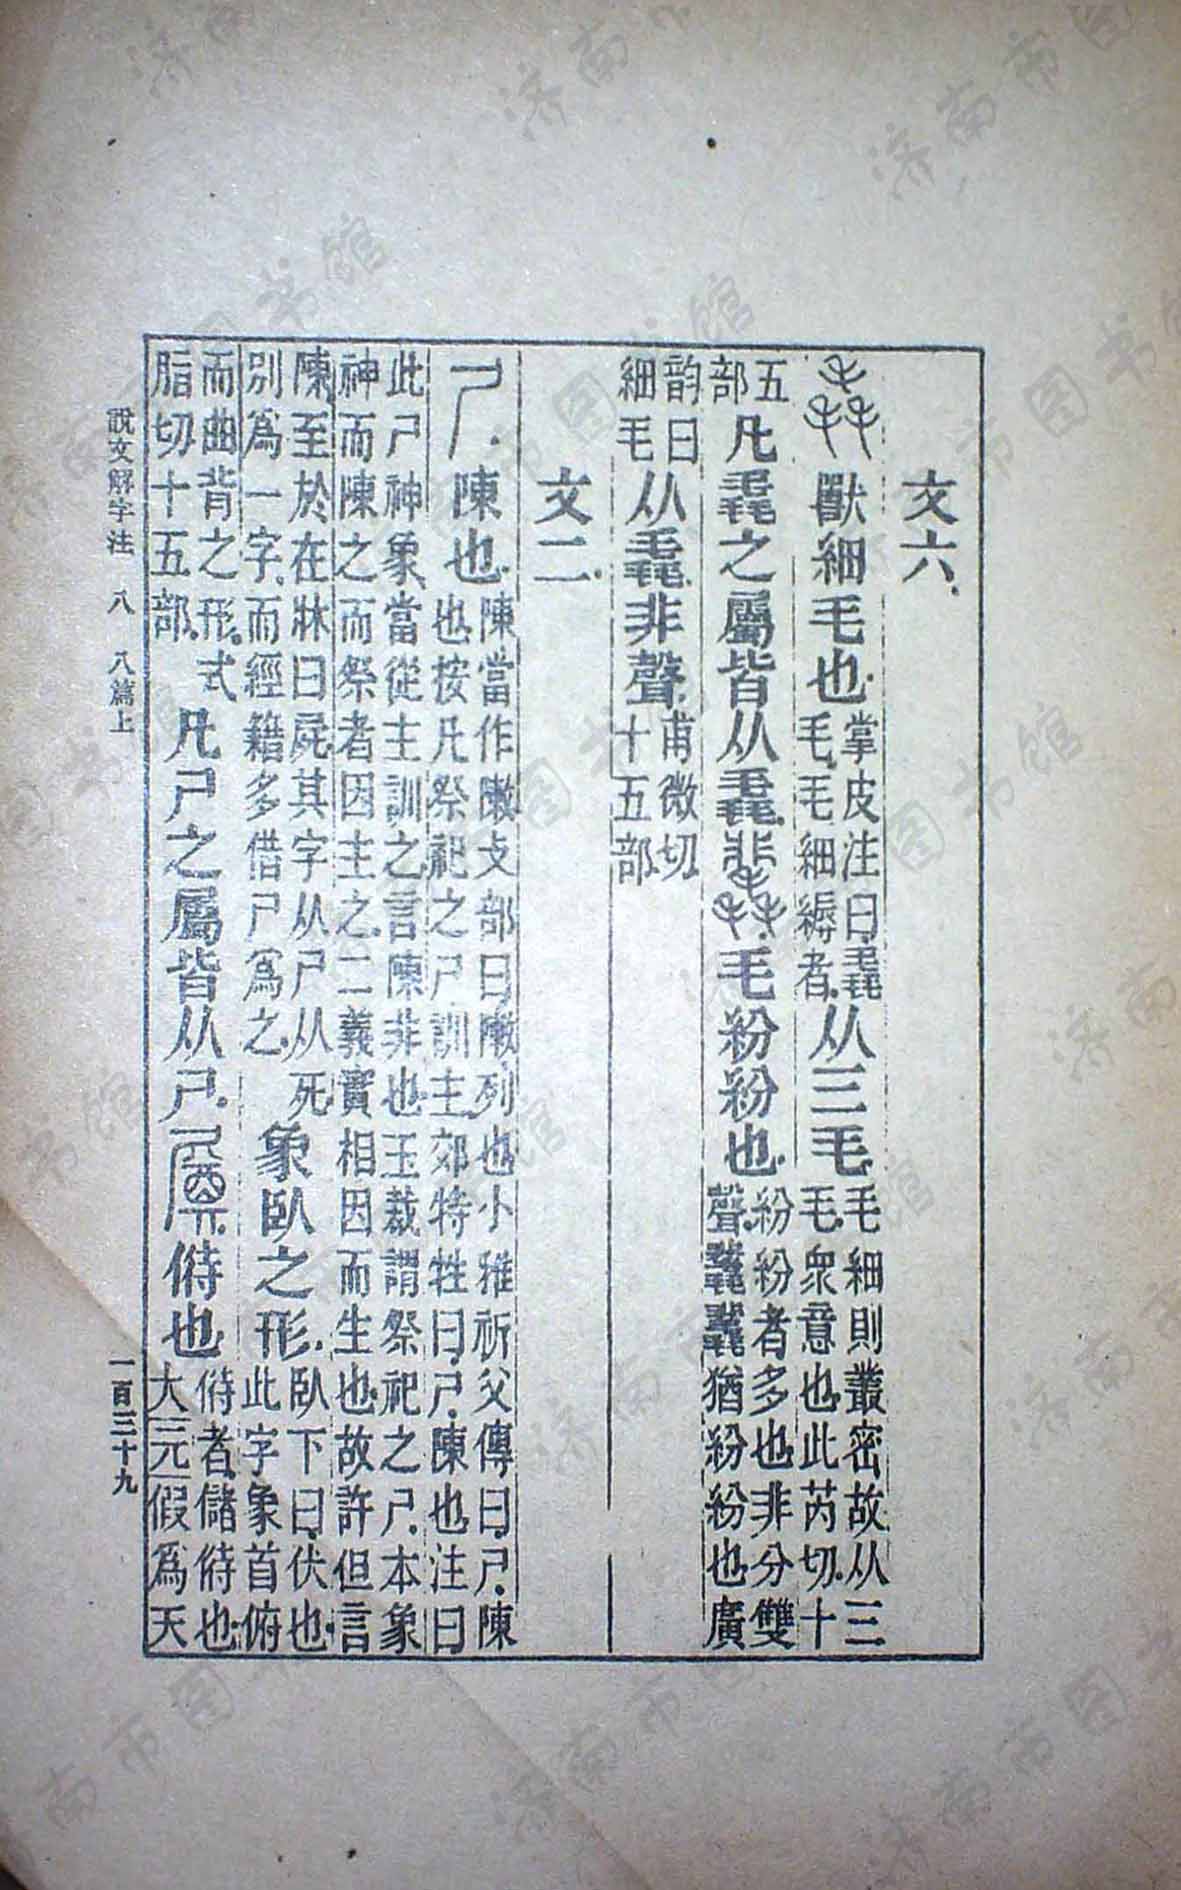 文六.
毳獸細毛也.掌皮注曰.毳毛.毛細縟者.从三毛.毛細則叢密故从三毛.毛衆意也.此芮切.十
五部凡毳之屬皆从毳.𣰽毛紛紛也.紛紛者.多也.非分雙聲.𣰽𣰽猶紛紛也廣
韵曰細毛从毳.非聲.甫微切十五部.
文二.
尸.陳也.陳當作敶.攴部曰.敶.列也.小雅祈父傳曰.尸.陳也.按凡祭祀之尸訓主.郊特牲曰.尸.陳也.注曰
此尸神象.當從主訓之.言陳非也.玉裁謂祭祀之尸.本象神而陳之.而祭者因主之.二義實相因而生也.故許但言
陳.至於在牀曰屍.其字从尸从死.別爲一字.而經籍多借尸爲之.象臥之形.臥下曰.伏也.此字象首俯
而曲背之形.式脂切.十五部.凡尸之屬皆从尸.偫也.偫者.儲偫也.大元假爲天
說文解字注 八 八篇上 一百三十九
济南市图书馆